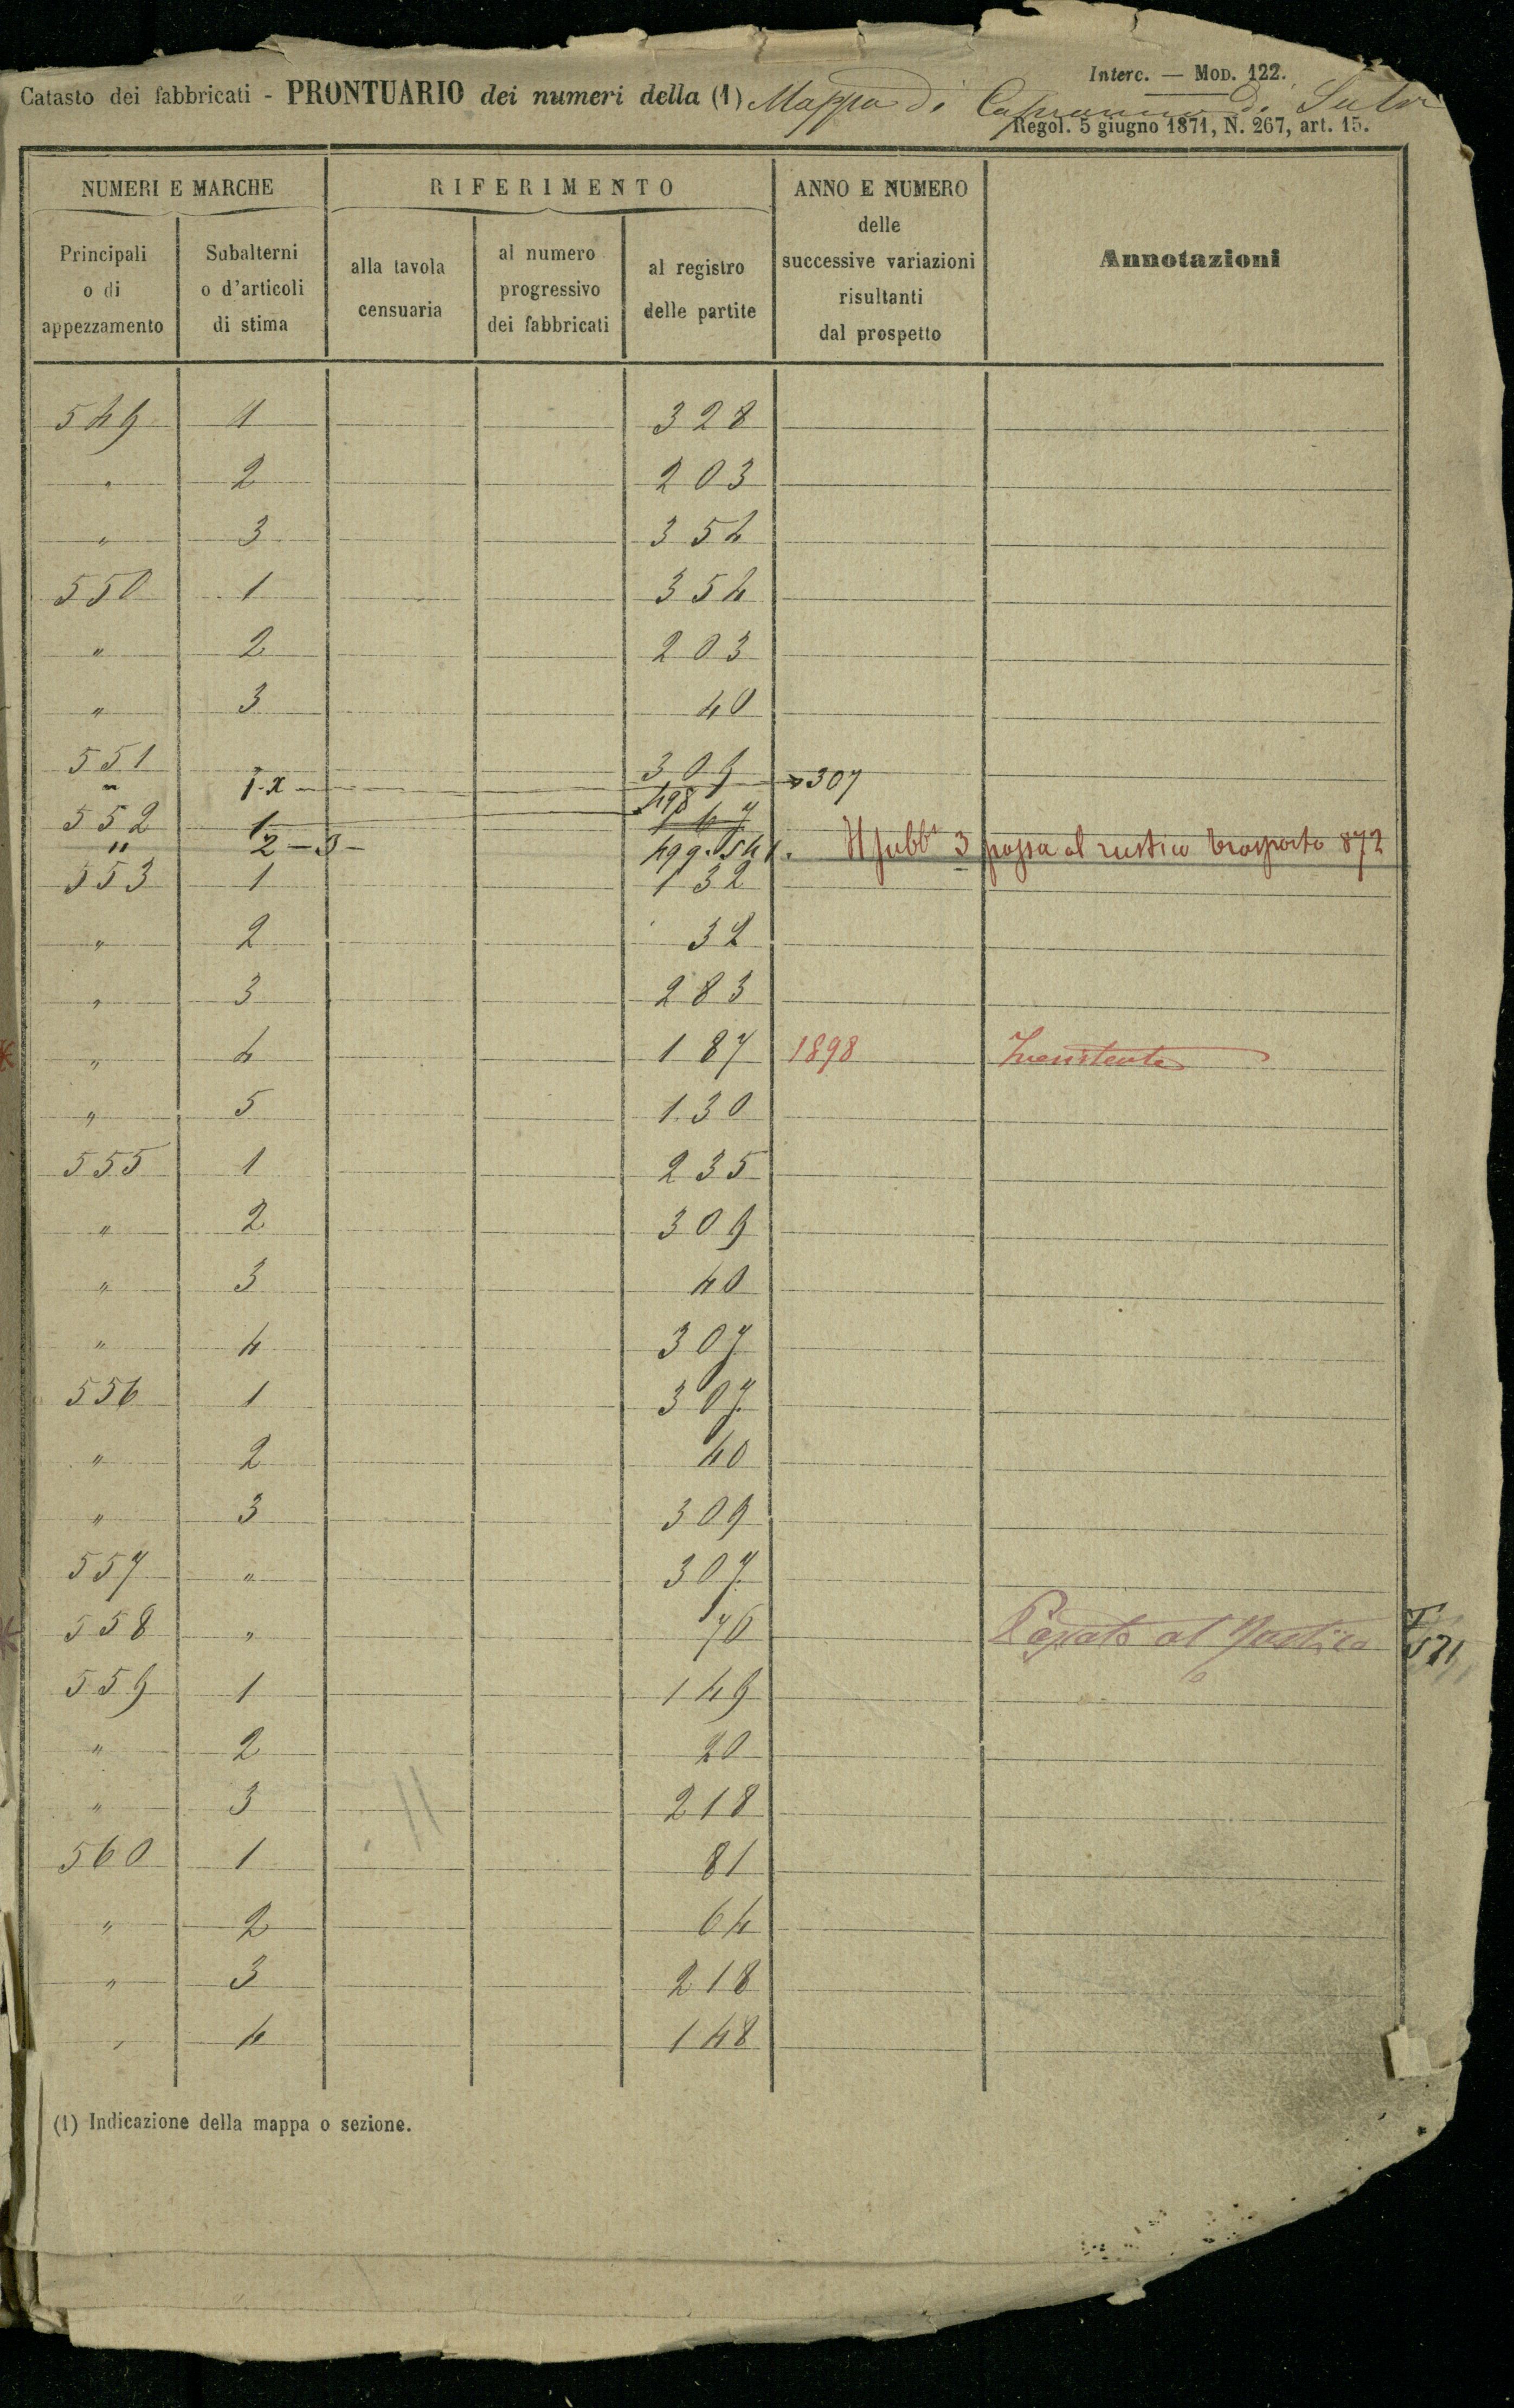 Interc. — MOD. 122.
Catasto dei fabbricati - PRONTUARIO dei numeri della (1) Mappa di Capranica di Sutri
Regol. 5 giugno 1871, N. 267, art. 15.
NUMERI E MARCHE RIFERIMENTO ANNO E NUMERO delle successive variazioni risultanti dal prospetto Annotazioni
Principali o di appezzamento Subalterni o d'articoli di stima alla tavola censuaria al numero progressivo dei fabbricati al registro delle partite
549 1 328
" 2 203
" 3 354
550 1 354
" 2 203
" 3 40
551 309
" 1-x 307
498
552 1 67
" 2-3- 499.541. Il fubbto 3 passa al rustico trasporto 872
553 1 132
" 2 32
" 3 283
" 4 187 1898 Inesistente
" 5 130
555 1 235
" 2 309
" 3 40
" 4 307
556 1 307
" 2 40
" 3 309
557 " 307
558 " 70 al Rustico
559 1 149
" 2 20
" 3 218
560 1 81
" 2 64
" 3 218
" 4 148
(1) Indicazione della mappa o sezione.